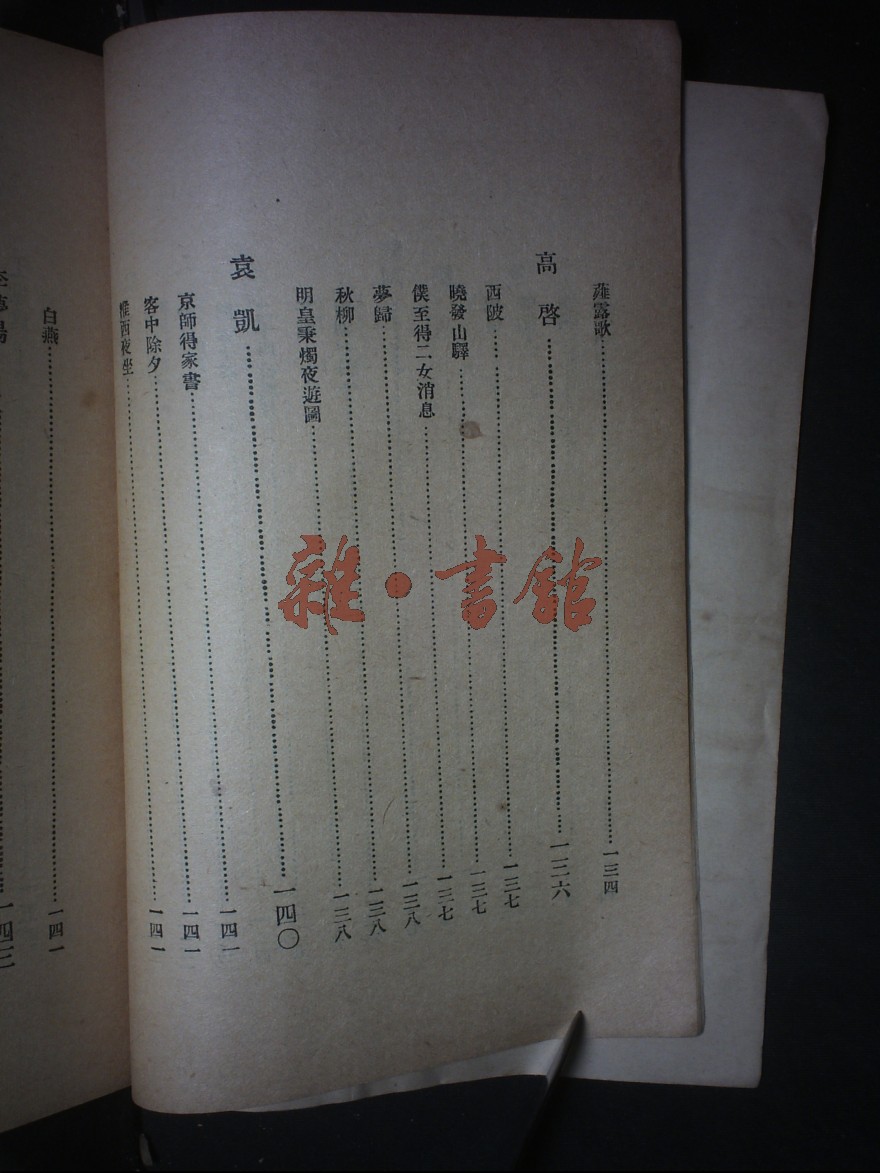 薤露歌……一三四
高啓……一三六
西陂……一三七
曉發山驛……一三七
僕至得二女消息……一三七
夢歸……一三八
秋柳……一三八
明皇秉燭夜遊圖……一三八
袁凱……一四〇
京師得家書……一四一
客中除夕……一四一
淮西夜坐……一四一
白燕……一四一
雜·書館